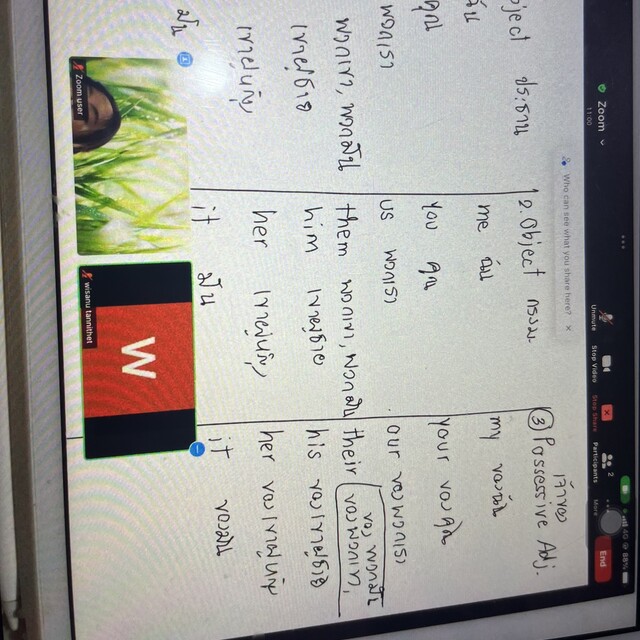 Zoom
11:00
4G 88%
Who can see what you share here? ×
Unmute
Stop Video
Stop Share
Participants
2
More
End
ประธาน
คุณ
พวกเรา
พวกเขา, พวกมัน
เขาผู้ชาย
เขาผู้หญิง
มัน
2. Object กรรม
me ฉัน
you คุณ
us พวกเรา
them พวกเขา, พวกมัน
him เขาผู้ชาย
her เขาผู้หญิง
it มัน
เจ้าของ
3 Possessive Adj.
my ของฉัน
your ของคุณ
our ของพวกเรา
their ของพวกเขา,
ของพวกมัน
his ของเขาผู้ชาย
her ของเขาผู้หญิง
it ของมัน
Zoom user
W
wisanu tannithet